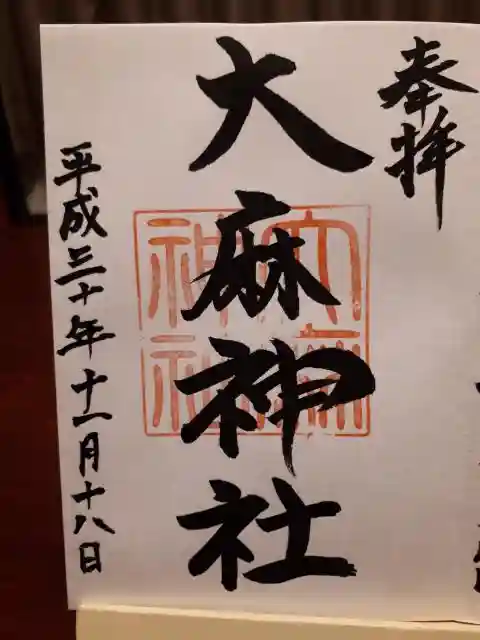 奉拝
大麻神社
平成三十年十一月十八日